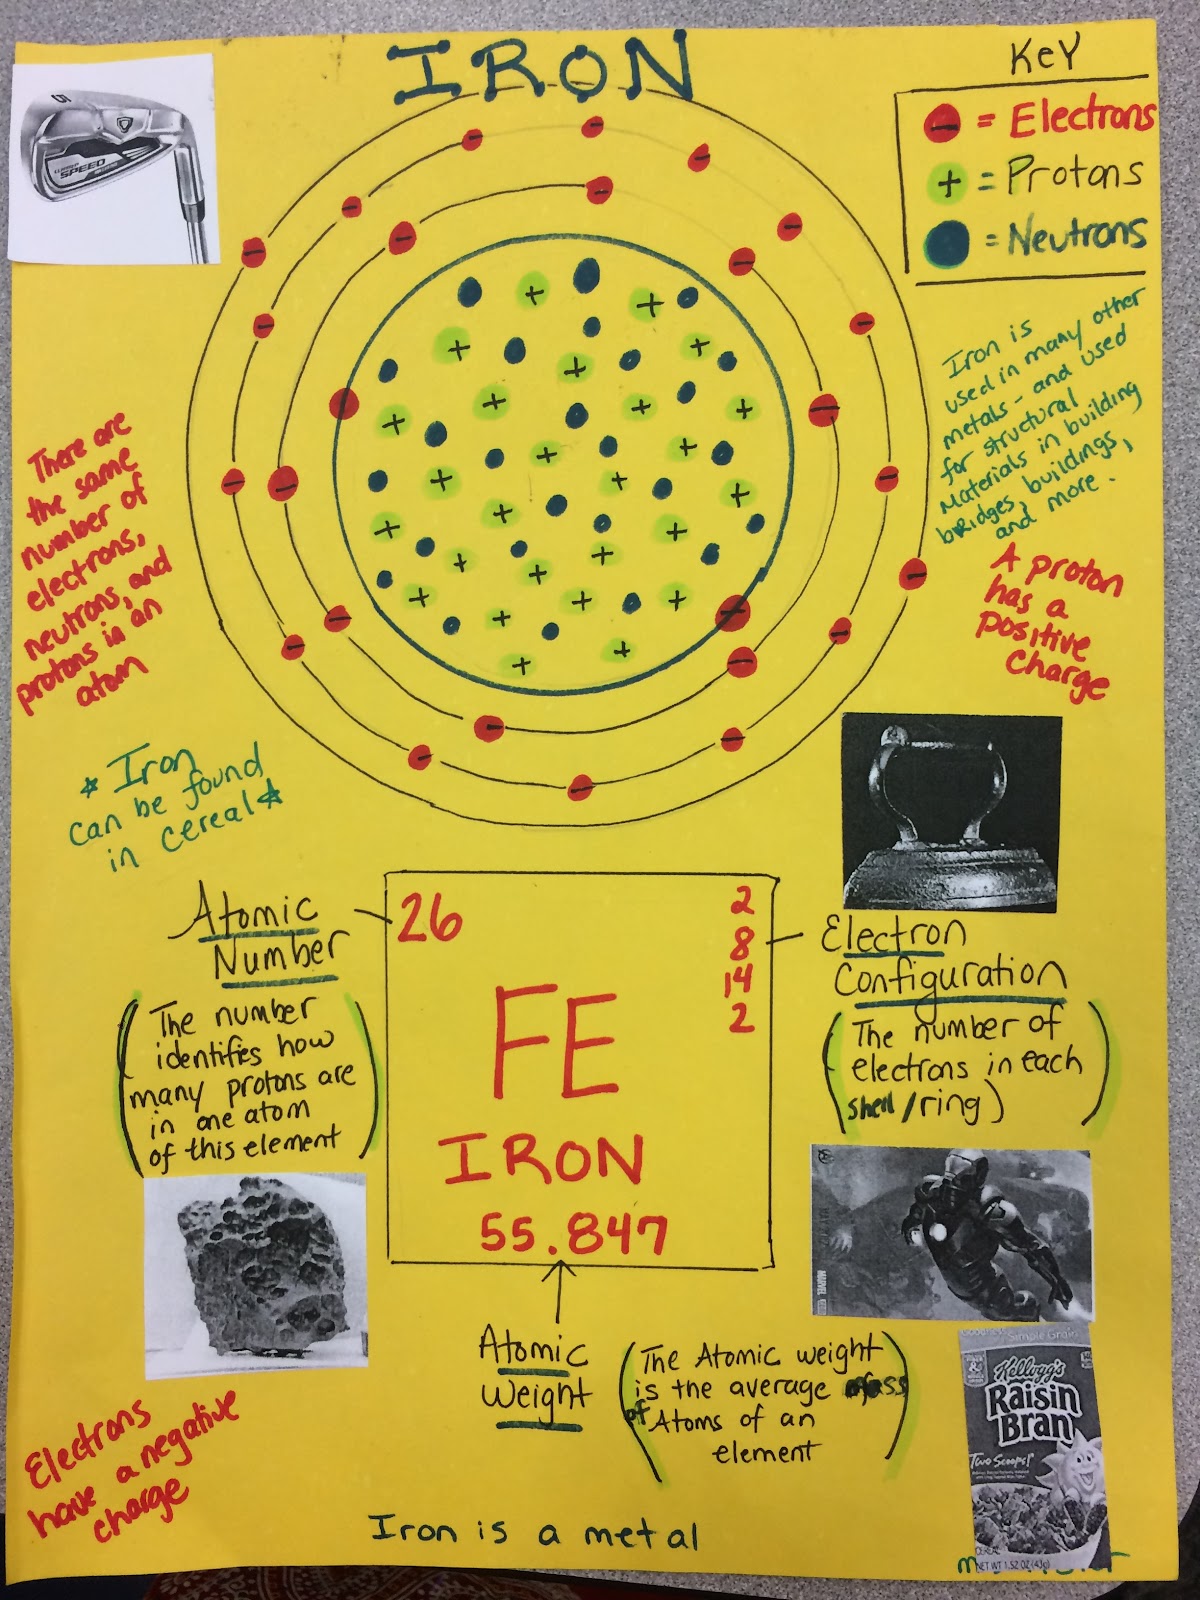 IRON
KEY
- = Electrons
+ = Protons
= Neutrons
SPEED
Iron is
used in many other
metals - and used
for structural
Materials in building
bridges, buildings,
and more.
There are
the same
number of
electrons,
neutrons, and
protons in an
atom
A proton
has a
positive
charge
* Iron
can be found
in cereal *
Atomic
Number
(The number
identifies how
many protons are
in one atom
of this element)
26
2
8
14
2
FE
IRON
55.847
Electron
Configuration
(The number of
electrons in each
shell/ring)
Atomic
Weight
(The Atomic weight
is the average mass
of Atoms of an
element)
Electrons
have a negative
charge
Iron is a metal
MARVEL
Simple Grain
Kellogg's
Raisin
Bran
Two Scoops!
CEREAL
NET WT 1.52 OZ (43g)